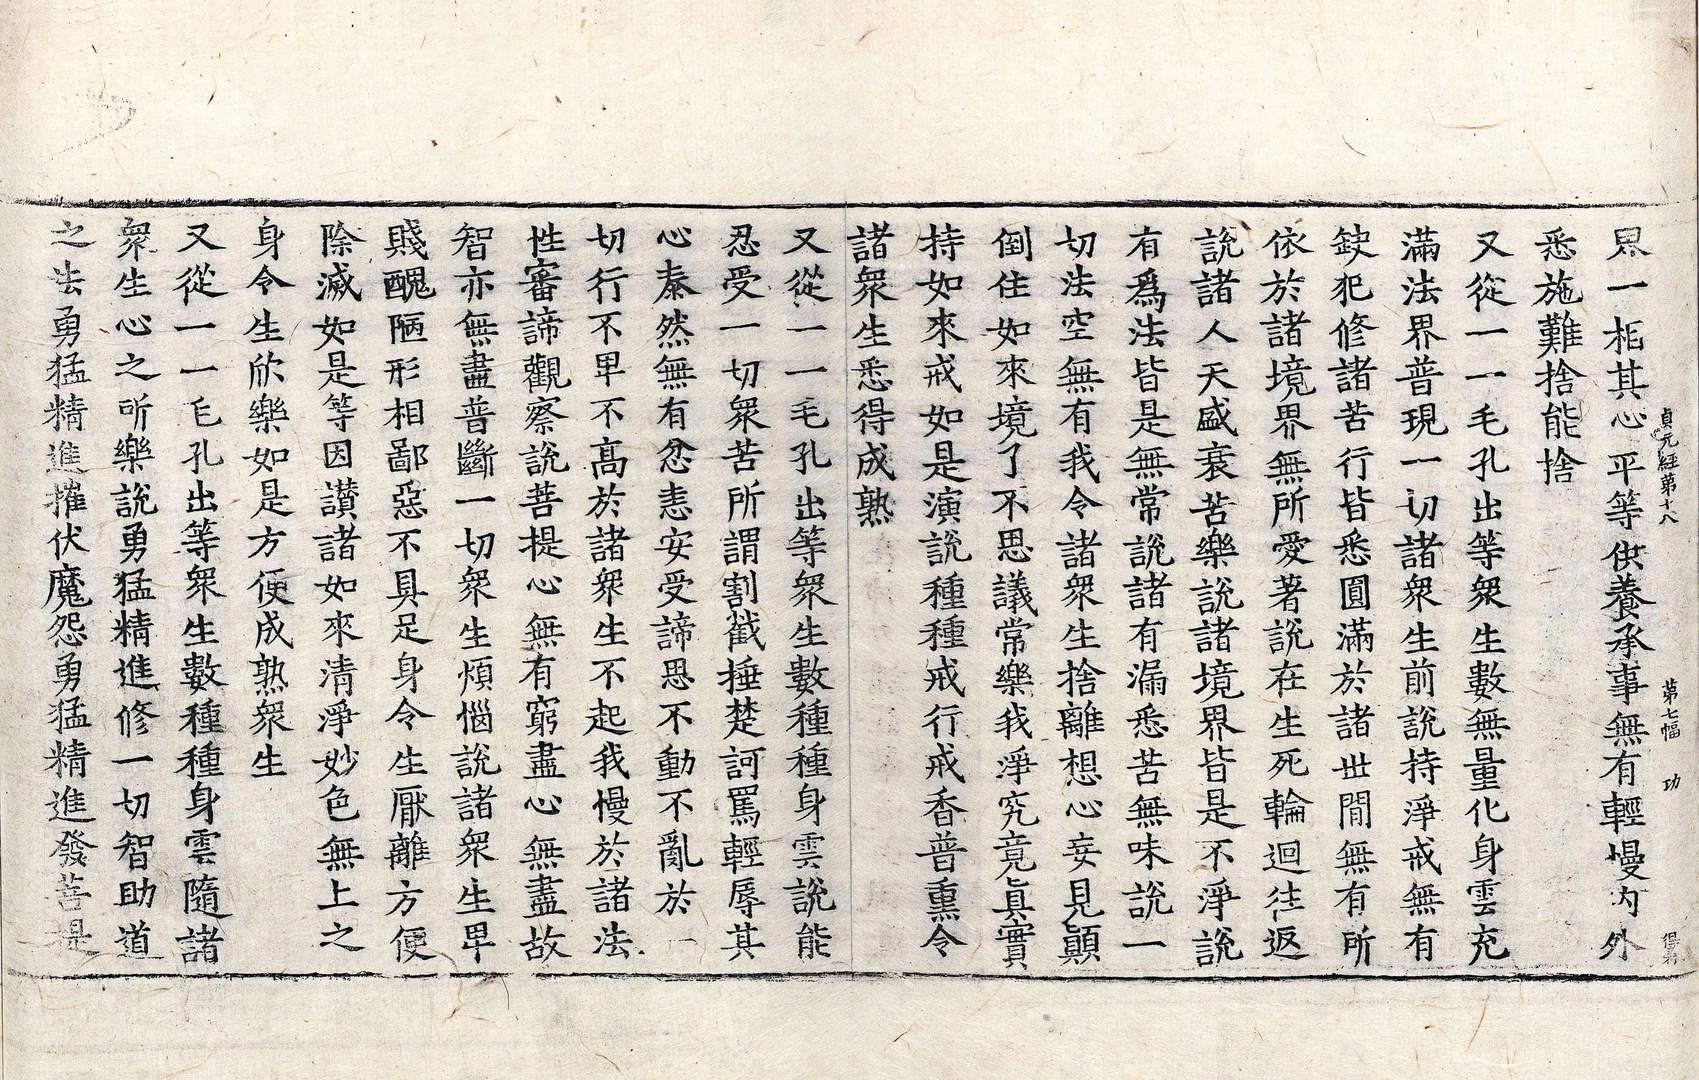 界一相其心平等供養承事無有輕慢内外
悉施難捨能捨
又從一一毛孔出等衆生數無量化身雲充
滿法界普現一切諸衆生前說持淨戒無有
缺犯修諸苦行皆悉圓滿於諸世閒無有所
依於諸境界無所愛著說在生死輪迴往返
說諸人天盛衰苦樂說諸境界皆是不淨說
有爲法皆是無常說諸有漏悉苦無味說一
切法空無有我令諸衆生捨離想心妄見顚
倒住如來境了不思議常樂我淨究竟眞實
持如來戒如是演說種種戒行戒香普熏令
諸衆生悉得成熟
又從一一毛孔出等衆生數種種身雲說能
忍受一切衆苦所謂割截捶楚訶罵輕辱其
心泰然無有忿恚安受諦思不動不亂於一
切行不卑不高於諸衆生不起我慢於諸法
性審諦觀察說菩提心無有窮盡心無盡故
智亦無盡普斷一切衆生煩惱說諸衆生卑
賤醜陋形相鄙惡不具足身令生厭離方便
除滅如是等因讚諸如來清淨妙色無上之
身令生欣樂如是方便成熟衆生
又從一一毛孔出等衆生數種種身雲隨諸
衆生心之所樂說勇猛精進修一切智助道
之法勇猛精進摧伏魔怨勇猛精進發菩提
貞元經第十八 第七幅 功